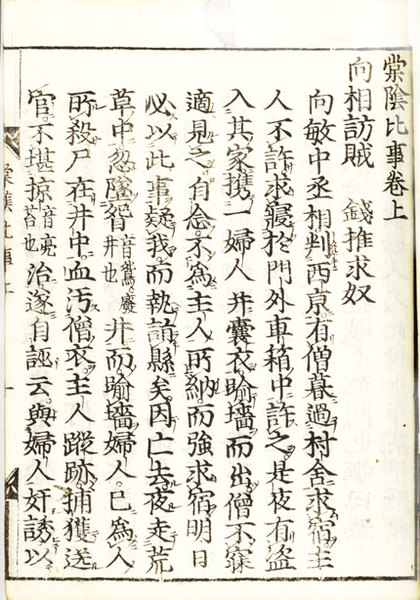 棠陰比事卷上
向相訪賊　錢推求奴
向敏中丞相判西京有僧暮過村舍求宿主
人不許求寢於門外車箱中許之是夜有盜
入其家携一婦人并囊衣踰墻而出僧不寐
適見之自念不爲主人所納而強求宿明日
必以此事疑我而執詣縣矣因亡去夜走荒
草中忽墜眢音鴛廢井也井而踰墻婦人已爲人
所殺尸在井中血汚僧衣主人蹤跡捕獲送
官不堪掠音亮笞也治遂自誣云與婦人奸誘以
棠陰比事上
一